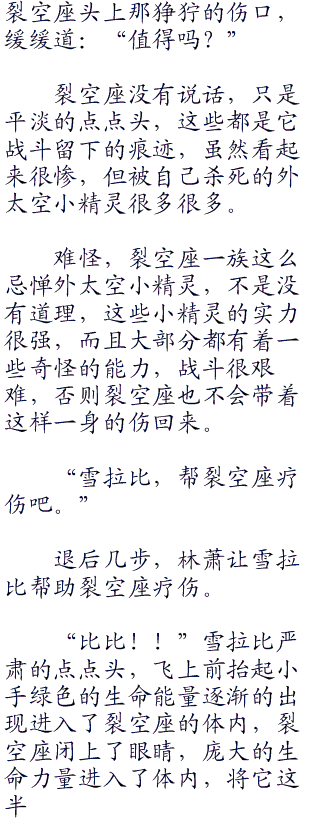 裂空座头上那狰狞的伤口，
缓缓道：“值得吗？”
裂空座没有说话，只是
平淡的点点头，这些都是它
战斗留下的痕迹，虽然看起
来很惨，但被自己杀死的外
太空小精灵很多很多。
难怪，裂空座一族这么
忌惮外太空小精灵，不是没
有道理，这些小精灵的实力
很强，而且大部分都有着一
些奇怪的能力，战斗很艰
难，否则裂空座也不会带着
这样一身的伤回来。
“雪拉比，帮裂空座疗
伤吧。”
退后几步，林萧让雪拉
比帮助裂空座疗伤。
“比比！！”雪拉比严
肃的点点头，飞上前抬起小
手绿色的生命能量逐渐的出
现进入了裂空座的体内，裂
空座闭上了眼睛，庞大的生
命力量进入了体内，将它这
半